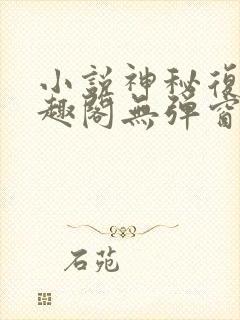 小説神秘復
趣閣無彈窗
石苑